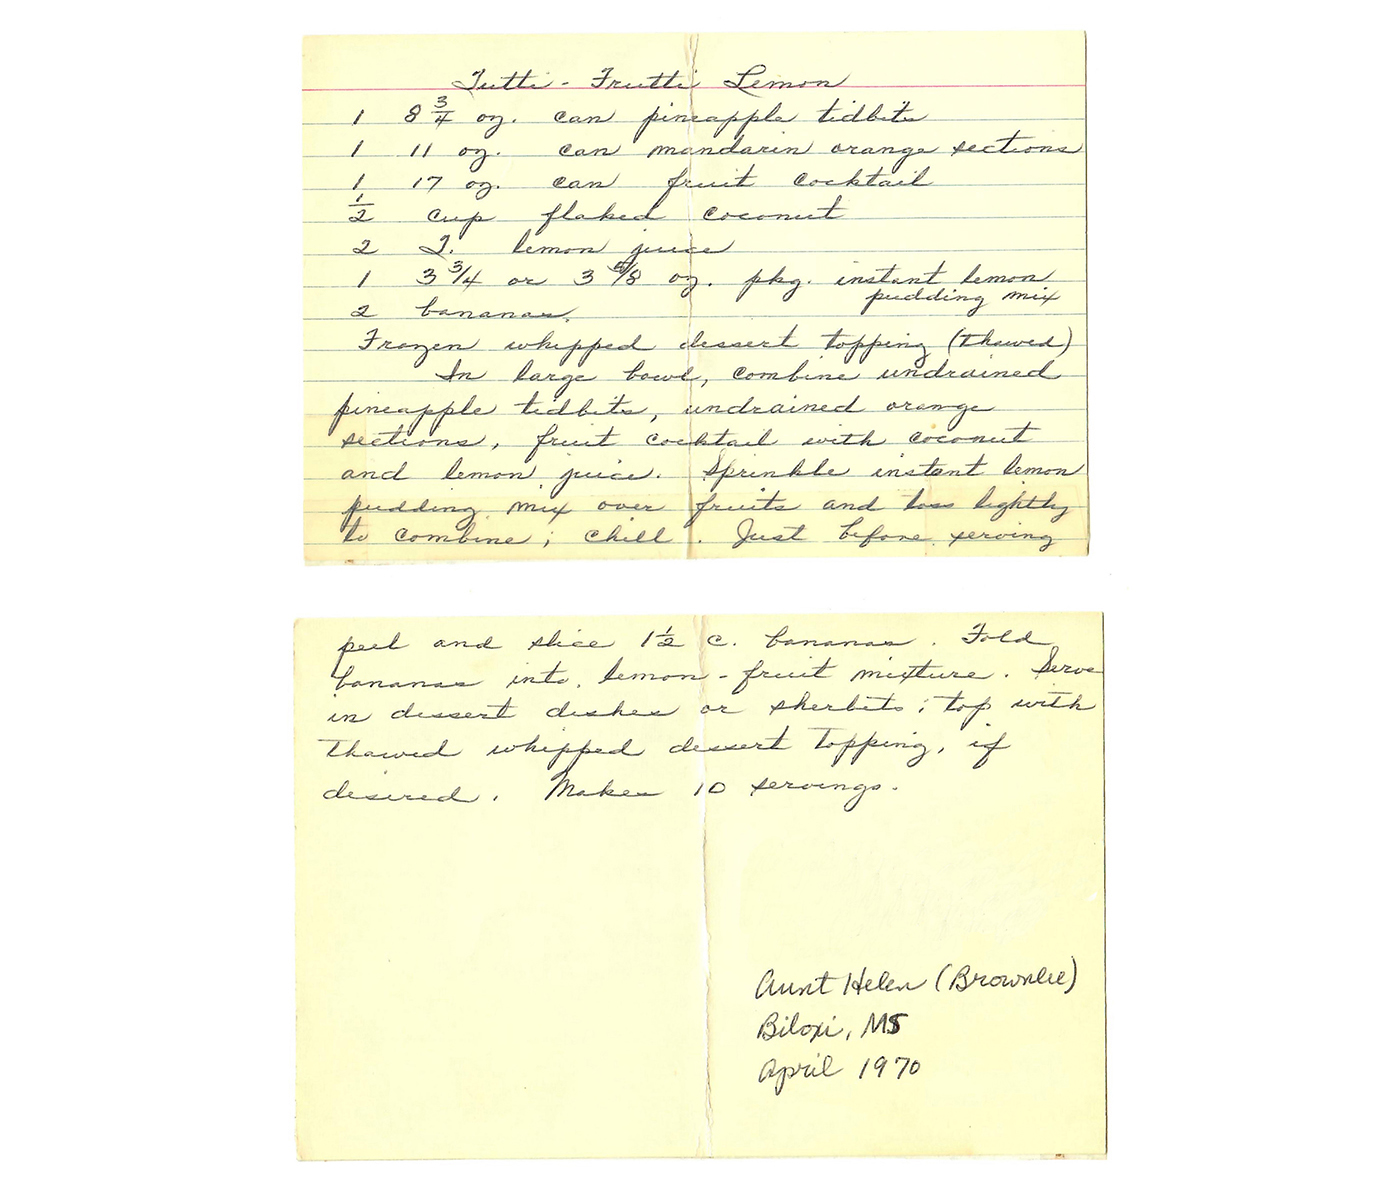 Tutti - Frutti Lemon
1 8 3/4 oz. can pineapple tidbits
1 11 oz. can mandarin orange sections
1 17 oz. can fruit cocktail
1/2 cup flaked coconut
2 T. lemon juice
1 3 3/4 or 3 5/8 oz. pkg. instant lemon
pudding mix
2 bananas.
Frozen whipped dessert topping (thawed)
In large bowl, combine undrained
pineapple tidbits, undrained orange
sections, fruit cocktail with coconut
and lemon juice. Sprinkle instant lemon
pudding mix over fruits and toss lightly
to combine; chill. Just before serving
peel and slice 1 1/2 c. bananas. Fold
bananas into lemon-fruit mixture. Serve
in dessert dishes or sherbits; top with
thawed whipped dessert topping, if
desired. Makes 10 servings.
Aunt Helen (Brownlee)
Biloxi, MS
April 1970